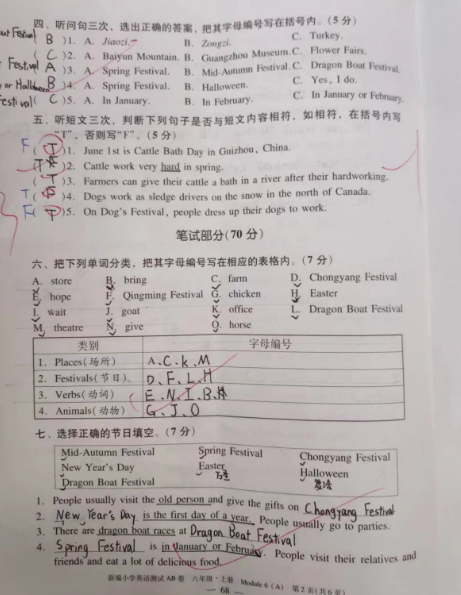 四、听问句三次，选出正确的答案，把其字母编号写在括号内。(5分)
( B )1. A. Jiaozi. B. Zongzi. C. Turkey.
( C )2. A. Baiyun Mountain. B. Guangzhou Museum. C. Flower Fairs.
( A )3. A. Spring Festival. B. Mid-Autumn Festival. C. Dragon Boat Festival.
( B )4. A. Spring Festival. B. Halloween. C. Yes, I do.
( C )5. A. In January. B. In February. C. In January or February.
五、听短文三次，判断下列句子是否与短文内容相符，如相符，在括号内写
“T”，否则写“F”。(5分)
F ( T )1. June 1st is Cattle Bath Day in Guizhou, China.
2. Cattle work very hard in spring.
( T )3. Farmers can give their cattle a bath in a river after their hardworking.
T ( F )4. Dogs work as sledge drivers on the snow in the north of Canada.
F ( T )5. On Dog's Festival, people dress up their dogs to work.
笔试部分(70分)
六、把下列单词分类，把其字母编号写在相应的表格内。(7分)
A. store B. bring C. farm D. Chongyang Festival
E. hope F. Qingming Festival G. chicken H. Easter
I. wait J. goat K. office L. Dragon Boat Festival
M. theatre N. give O. horse
类别 字母编号
1. Places(场所) A、C、k、M
2. Festivals(节日) D、F、L、H
3. Verbs(动词) E、N、I、B
4. Animals(动物) G、J、O
七、选择正确的节日填空。(7分)
Mid-Autumn Festival Spring Festival Chongyang Festival
New Year's Day Easter Halloween
Dragon Boat Festival
1. People usually visit the old person and give the gifts on Chongyang Festival
2. New Year's Day is the first day of a year. People usually go to parties.
3. There are dragon boat races at Dragon Boat Festival
4. Spring Festival is in January or February. People visit their relatives and
friends and eat a lot of delicious food.
新编小学英语测试AB卷 六年级·上册 Module 6 (A) 第2页(共6页)
— 68 —